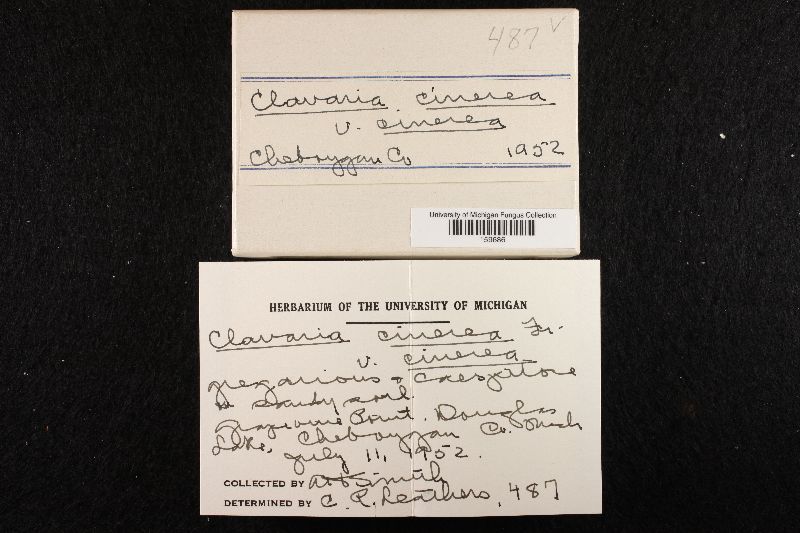 487 v
Clavaria cinerea
v. cinerea
Cheboygan Co 1952
University of Michigan Fungus Collection
159686
HERBARIUM OF THE UNIVERSITY OF MICHIGAN
Clavaria cinerea Fr.
v. cinerea
gregarious + caespitose
on sandy soil
Grapevine Point, Douglas
Lake, Cheboygan Co. Mich
July 11, 1952.
COLLECTED BY AH Smith
DETERMINED BY C. P. Leathers, 487